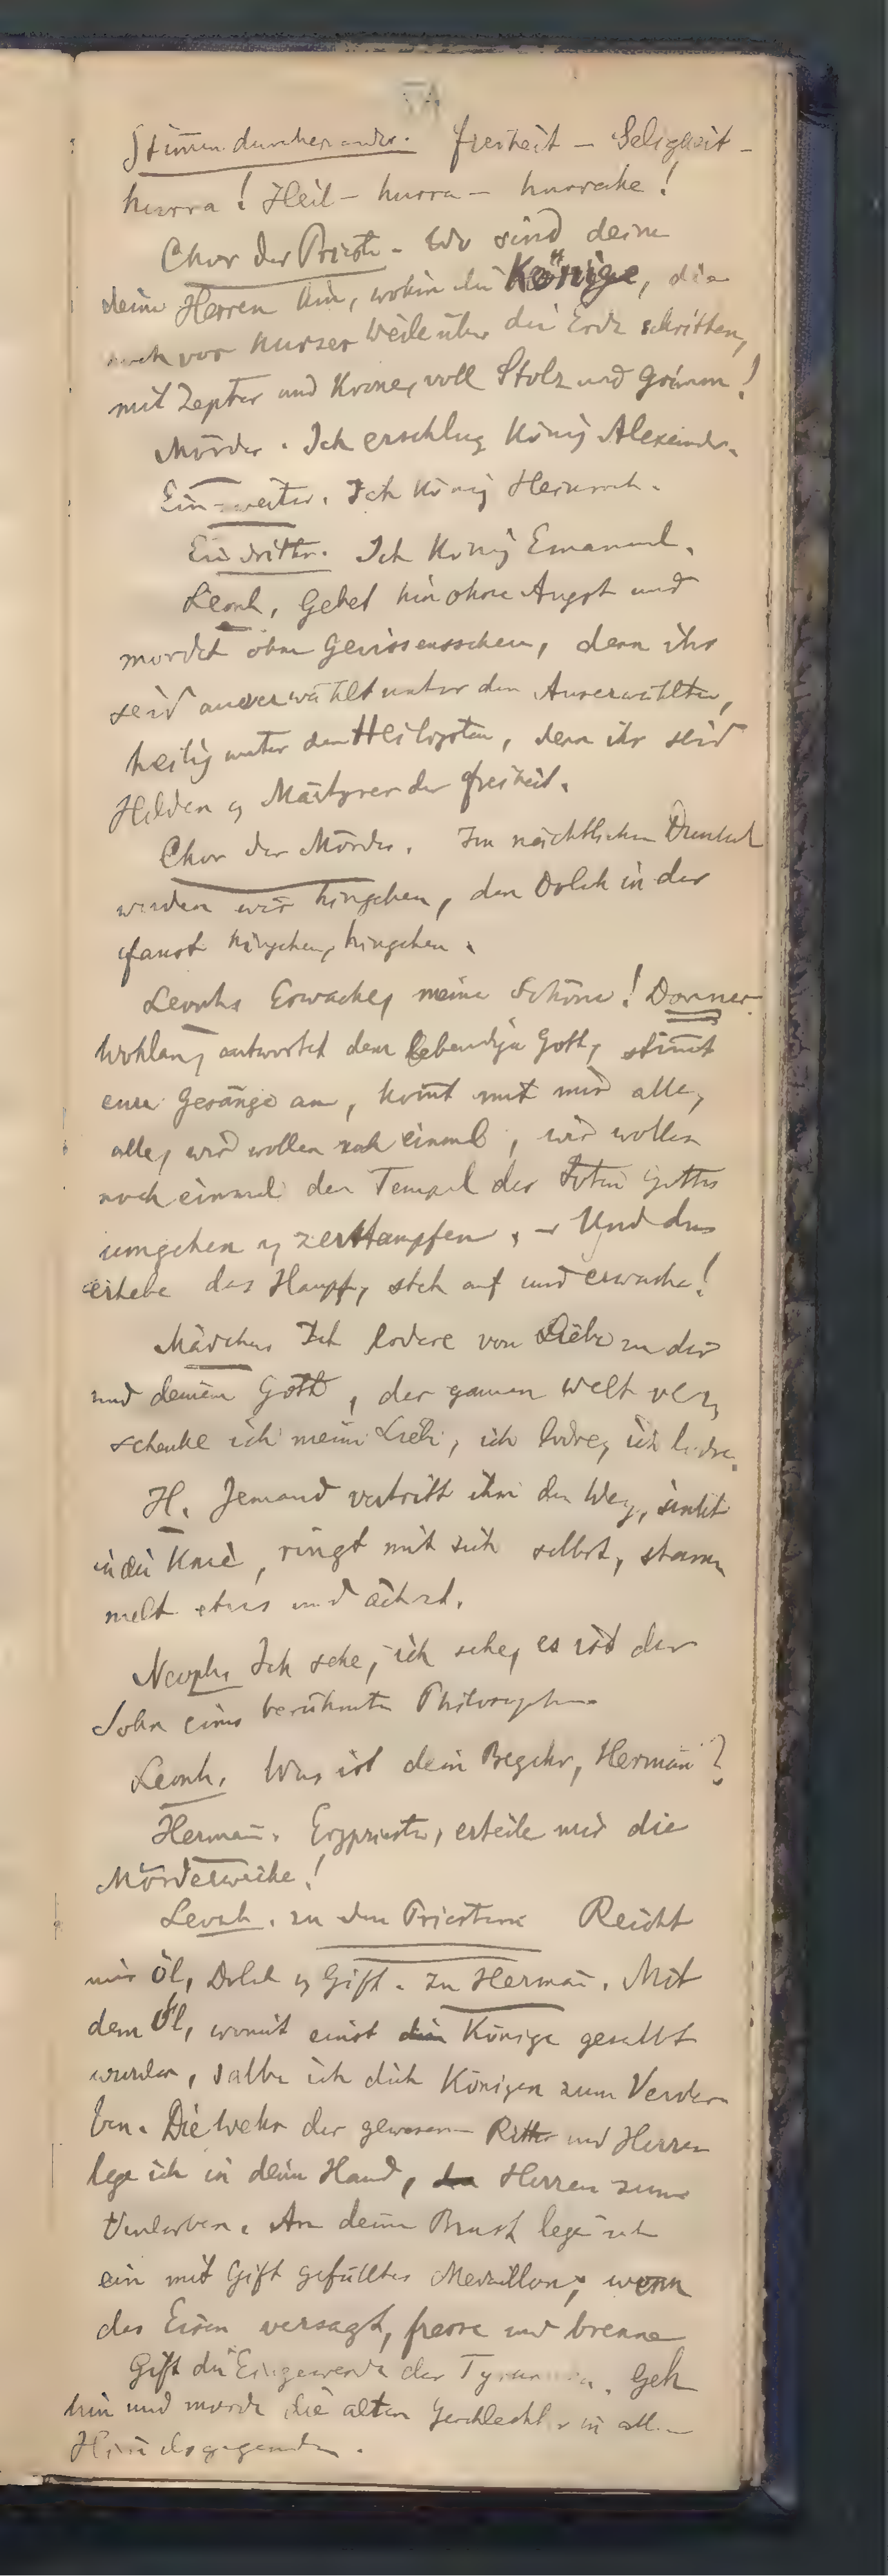 Stimen durcheinander. Freiheit – Seligkeit –
hurra! Heil – hurra – hurrahe!
Chor der Priester. Wo sind deine
deine Herren hin, wohin die Könige, die
noch vor kurzer Weile über die Erde schritten,
mit Zepter und Krone, voll Stolz und Grimm!
Mörder. Ich erschlug König Alexander.
Ein zweiter. Ich König Heinrich.
Ein dritter. Ich König Emanuel.
Leonh. Gehet hin ohne Angst und
mordet ohne Gewissensscheu, denn ihr
seid auserwählt unter den Auserwählten,
heilig unter den Heiligsten, denn ihr seid
Helden u Märtyrer der Freiheit.
Chor der Mörder. Im nächtlichen Dunkel
werden wir hingehen, den Dolch in der
Faust hingehen, hingehen.
Leonh. Erwache, meine Schöne! Donner
Wohlan, antwortet dem lebendigen Gott, stim̄t
eure Gesänge an, kom̄t mit mir alle,
alle, wir wollen noch einmal, wir wollen
noch einmal den Tempel des toten Gottes
umgehen u zerstampfen. – Und du
erhebe das Haupt, steh auf und erwache!
Mädchen Ich lodere von Liebe zu dir
und deinem Gott, der ganzen Welt ver,
schenke ich meine Liebe, ich lodre, ich lodre.
H. Jemand vertritt ihm den Weg, sinkt
in die Knie, ringt mit sich selbst, stam
melt etwas und ächzt.
Neoph. Ich sehe, ich sehe, es ist der
Sohn eines berühmten Philosophen
Leonh. Was ist dein Begehr, Herman̄?
Herman̄. Erzpriester, erteile mir die
Mörderweihe!
Leonh. zu den Priestern Reicht
mir Öl, Dolch u Gift. Zu Herman̄. Mit
dem Öl, womit einst die Könige gesalbt
wurden, salbe ich dich Königen zum Verder
ben. Die Wehr der gewesenen Ritter und Herren
lege ich in deine Hand, den Herren zum
Verderben. An deine Brust lege ich
ein mit Gift gefülltes Medaillon; wenn
das Eisen versagt, fresse und brenne
Gift die Eingeweide der Tyrannen. Geh
hin und morde die alten Geschlechter in allen
Him̄elsgegenden.